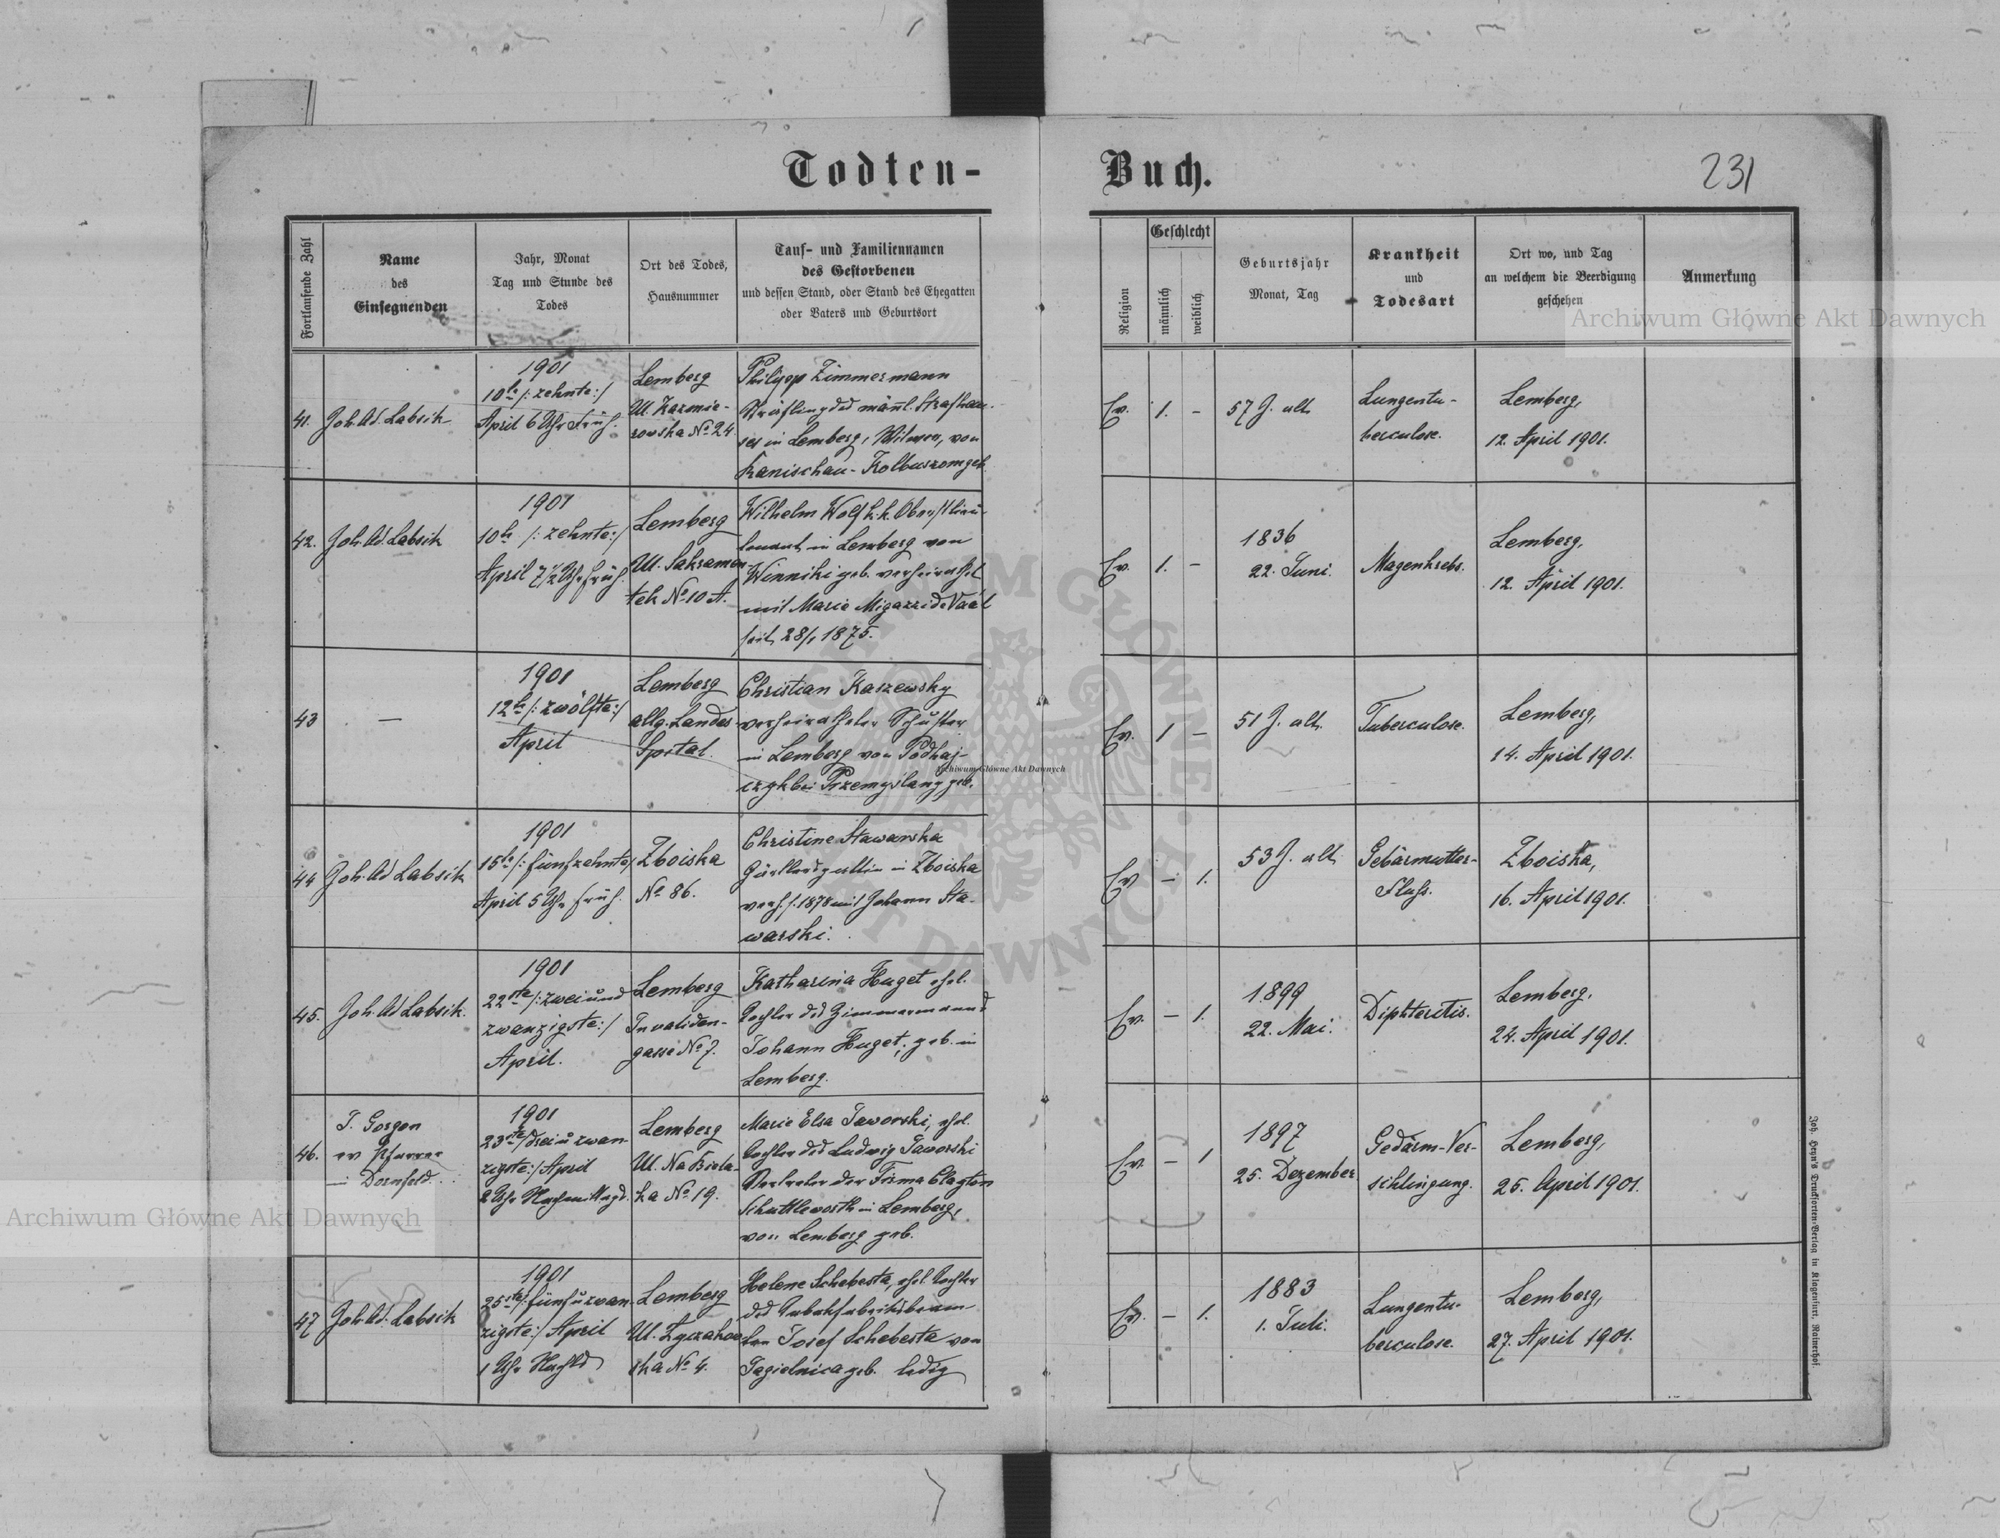 Todten-Buch.
231
Fortlaufende Zahl
Name
des
Einsegnenden
Jahr, Monat
Tag und Stunde des
Todes
Ort des Todes,
Hausnummer
Tauf- und Familiennamen
des Gestorbenen
und dessen Stand, oder Stand des Ehegatten
oder Vaters und Geburtsort
Religion
Geschlecht
männlich
weiblich
Geburtsjahr
Monat, Tag
Krankheit
und
Todesart
Ort wo, und Tag
an welchem die Beerdigung
geschehen
Anmerkung
41.
Joh. Ad. Labsik
1901
10te /: zehnte :/
April 6 Uhr Früh.
Lemberg
Ul. Kazmie-
rowska No 24
Philipp Zimmermann
Sträfling des männl. Strafhau-
ses in Lemberg, Witwer, von
Kanischau - Kolbuszow geb.
Ev.
1.
-
57 J. alt
Lungentu-
berculose.
Lemberg,
12. April 1901.
42.
Joh. Ad. Labsik
1901
10te /: zehnte :/
April 7 1/2 Uhr früh.
Lemberg
Ul. Sakramen-
tek No 10 A.
Wilhelm Wolf k. k. Oberstlieu-
tenant in Lemberg von
Winniki geb. verheirathet
mit Marie Migazzi de Vaal
seit 28/1 1875.
Ev.
1.
-
1836
22. Juni.
Magenkrebs.
Lemberg,
12. April 1901.
43
—
1901
12te /: zwölfte :/
April
Lemberg
allg. Landes
Spital.
Christian Kaszewsky
verheiratheter Schuster
in Lemberg von Podhaj-
czyk bei Przemyslany geb.
Ev.
1
-
51 J. alt
Tuberculose.
Lemberg,
14. April 1901.
44
Joh. Ad Labsik
1901
15te /: fünfzehnte /
April 5 Uhr früh.
Zboiska
No 86.
Christine Stawarska
gattin in Zboiska
1878 mit Johann Sta-
warski.
Ev
-
1.
53 J. alt
Gebärmutter-
Fluss.
Zboiska,
16. April 1901.
45.
Joh. Ad Labsik.
1901
22ste /: zwei und
zwanzigste :/
April.
Lemberg
Invaliden-
gasse No 7.
Katharina Huget ehel.
Tochter des Zimmermanns
Johann Huget, geb. in
Lemberg.
Ev.
-
1.
1899
22. Mai.
Diphteritis.
Lemberg,
24. April 1901.
46.
J. Gorgon
ev Pfarrer
in Dornfeld.
1901
23ste /: drei u zwan-
zigste :/ April
2 Uhr Nachmittag.
Lemberg
Ul. Na
ka No 19.
Marie Elsa Jaworski, ehel.
Tochter des Ludwig Jaworski
Vertreter der Firma Clayton
Schuttleworth in Lemberg,
von Lemberg geb.
Ev.
-
1
1897
25. Dezember
Gedärm-Ver-
schlingung.
Lemberg,
25. April 1901.
47
Joh. Ad. Labsik
1901
25ste /: fünf u zwan-
zigste :/ April
1 Uhr Nachts
Lemberg
Ul. Łyczakow
ska No 4.
Helene Schebesta, ehel. Tochter
des Tabakfabriksbeam-
ten Josef Schebesta von
Jagielnica geb. ledig
Ev.
-
1.
1883
1. Juli.
Lungentu-
berculose.
Lemberg,
27. April 1901.
Joh. Heyn's Drucksorten-Verlag in Klagenfurt, Rainerhof.
Archiwum Główne Akt Dawnych
Archiwum Główne Akt Dawnych
Archiwum Główne Akt Dawnych